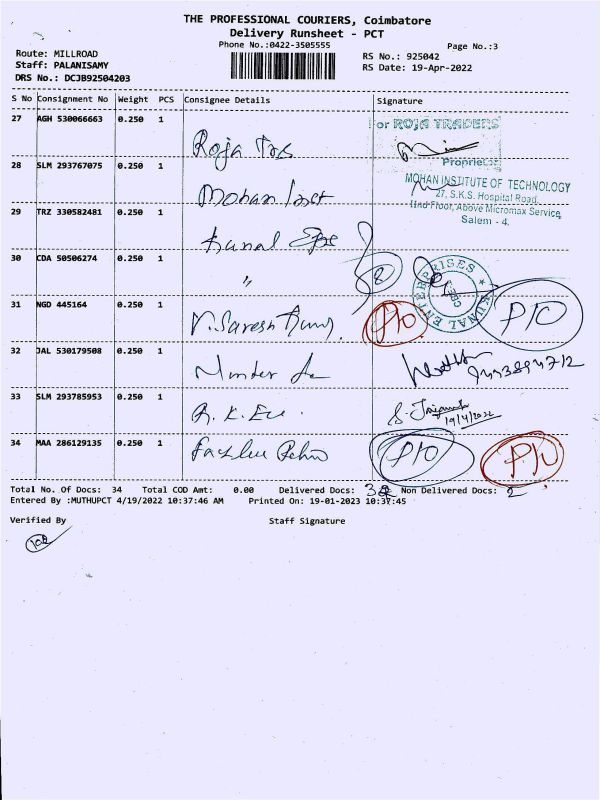 THE PROFESSIONAL COURIERS, Coimbatore
Delivery Runsheet - PCT
Phone No.:0422-3505555
Page No.:3
Route: MILLROAD
Staff: PALANISAMY
DRS No.: DCJB92504203
RS No.: 925042
RS Date: 19-Apr-2022
S No Consignment No Weight PCS Consignee Details Signature
27 AGH 530066663 0.250 1 Roja Trs
For ROJA TRADERS
Proprietor
28 SLM 293767075 0.250 1 Mohan Inst
MOHAN INSTITUTE OF TECHNOLOGY
27, S.K.S. Hospital Road,
IInd Floor, Above Micromax Service,
Salem - 4.
29 TRZ 330582481 0.250 1 Kunal Eps
30 CDA 50506274 0.250 1 "
KUNAL ENTERPRISES
31 NGD 445164 0.250 1 V. Suresh Kumar
P/O P/O
32 JAL 530179508 0.250 1
33 SLM 293785953 0.250 1
19/4/2022
34 MAA 286129135 0.250 1
P/O P/O
Total No. Of Docs: 34 Total COD Amt: 0.00 Delivered Docs: 32 Non Delivered Docs: 2
Entered By :MUTHUPCT 4/19/2022 10:37:46 AM Printed On: 19-01-2023 10:37:45
Verified By Staff Signature